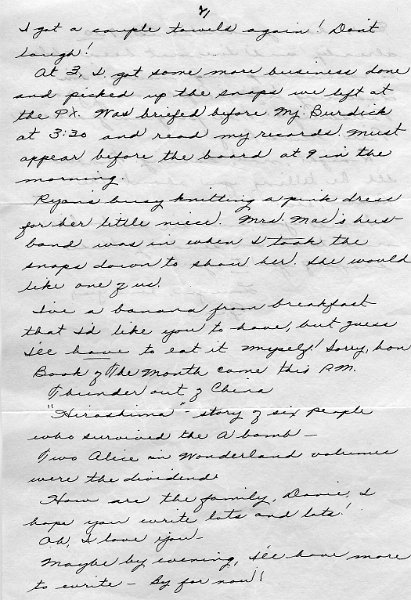 4/
I got a couple towels again! Don't
laugh!
At 3, I got some more business done
and picked up the snaps we left at
the PX. Was briefed before Maj. Burdick
at 3:30 and read my records. Must
appear before the board at 9 in the
morning.
Ryan's busy knitting a pink dress
for her little niece. Mrs. Mac's hus-
band was in when I took the
snaps down to show her. She would
like one of us.
I've a banana from breakfast
that I'd like you to have, but guess
I'll have to eat it myself! Sorry, hon
Book of The Month came this P.M.
Thunder out of China
"Hiroshima" - story of six people
who survived the A bomb -
Two Alice in Wonderland volumes
were the dividend.
How are the family, Davie, I
hope you write lots and lots!
Ah, I love you -
Maybe by evening, I'll have more
to write - By for now!